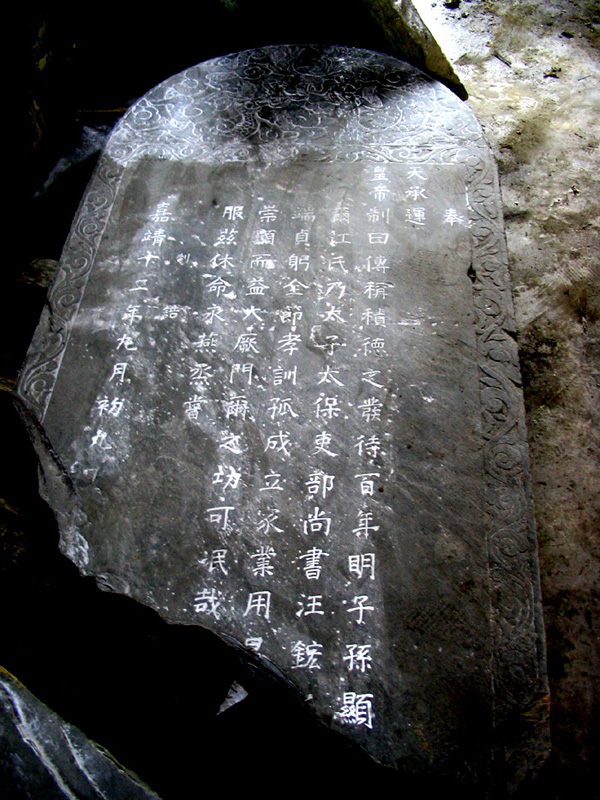 奉
天承運
皇帝制曰傳稱積德之發待百年明子孫顯
爾江氏乃太子太保吏部尚書汪鋐
端貞躬全節孝訓孤成立家業用
崇顯而益大厥門爾之坊可泯哉
服茲休命永燕烝嘗
制 誥
嘉靖十二年九月初九